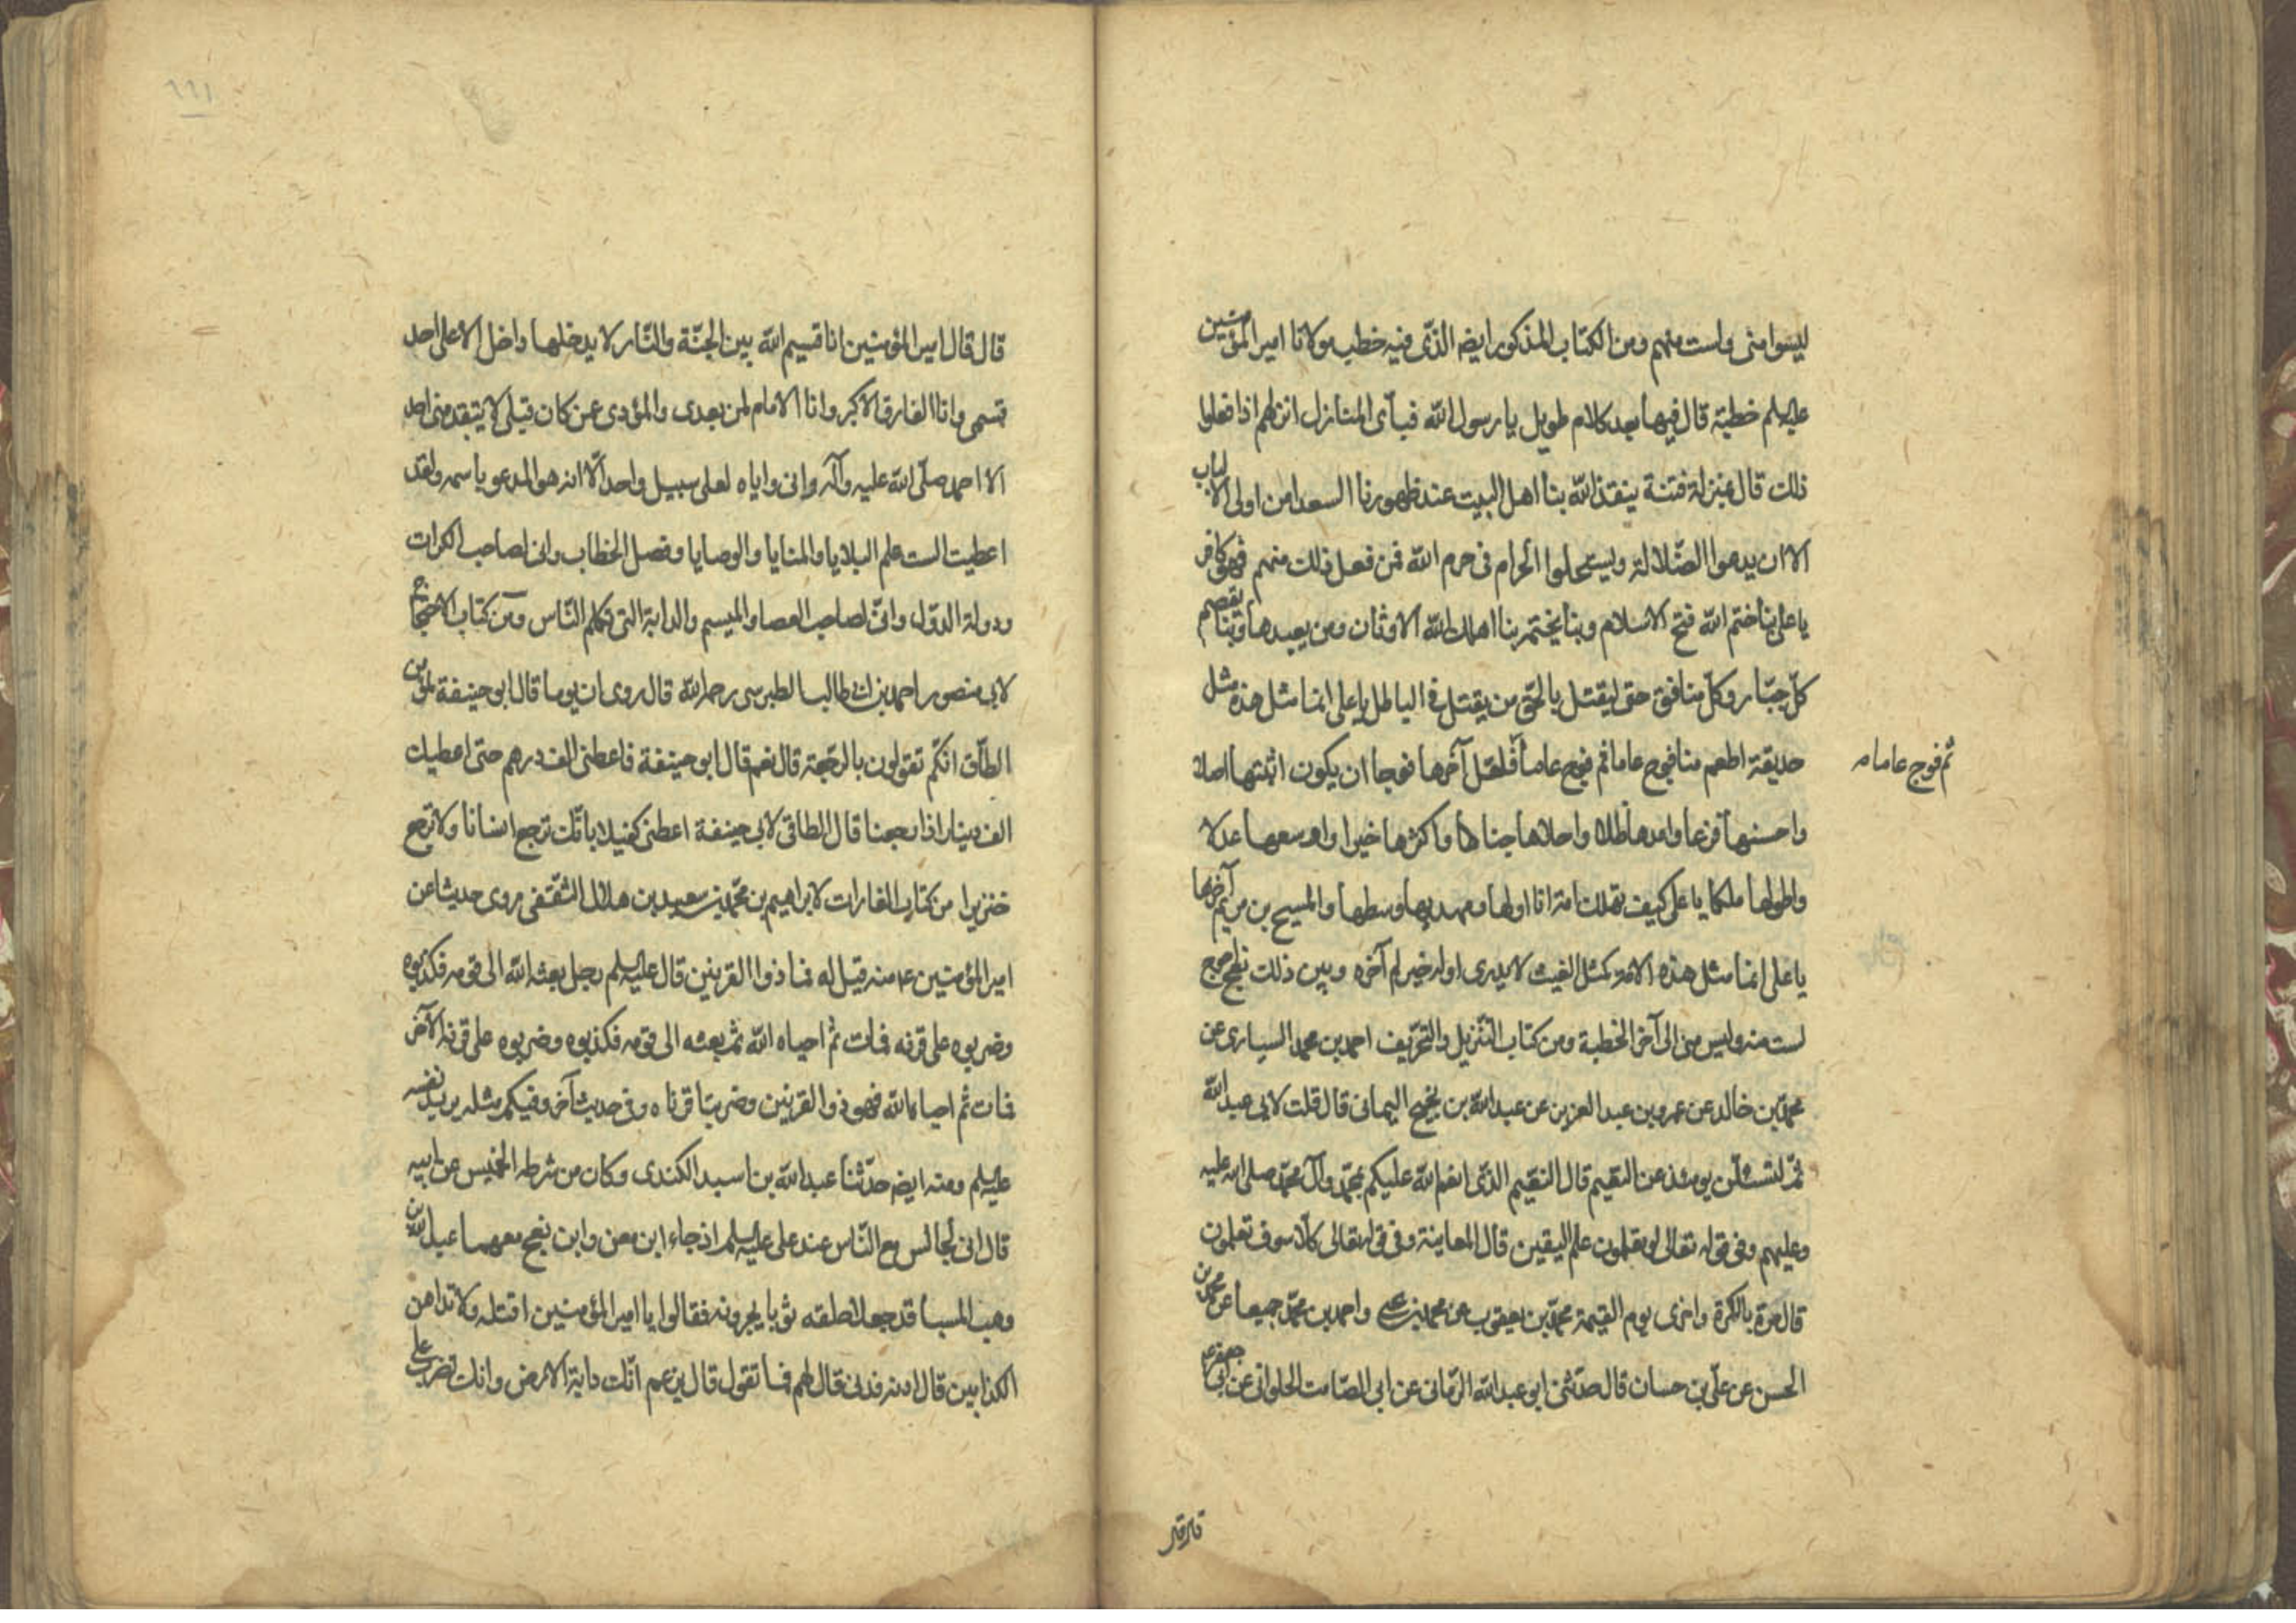 ليسوا منى ولست منهم ومن الكتاب المذكور ايضا الذى فيه خطب مولانا امير المؤمنين
عليه السلم خطبة قال فيها بعد كلام طويل يا رسول الله فبأى المنازل انزلهم اذا فعلوا
ذلك قال بمنزلة فتنة ينقذ الله بنا اهل البيت عند ظهورنا السعدا من اولى الالباب
الا ان يدعوا الضلالة ويستحلوا الحرام فى حرم الله فمن فعل ذلك منهم فهو كافر
يا على بنا ختم الله فتح الاسلام وبنا يختمه بنا اهلك الله الاوثان ومن يعبدها وبنا يقصم
كل جبار وكل منافق حتى ليقتل بالحق من يقتل فى الباطل يا على انما مثل هذه مثل
حديقة اطعم منا فوج عاما ثم فوج عاما فلعل آخرها فوجا ان يكون اثبتها اصلا
ثم فوج عاما م
واحسنها فرعا وامدها ظلا واحلاها جناها واكثرها خيرا واوسعها عدلا
واطولها ملكا يا على كيف تهلك امة انا اولها ومهديها وسطها والمسيح بن مريم آخرها
يا على انما مثل هذه الامة كمثل الغيث لا يدرى اوله خير ام آخره وبين ذلك نهج اعوج
لست منه وليس منى الى آخر الخطبة ومن كتاب التنزيل والتحريف احمد بن محمد السيارى عن
محمد بن خالد عن عمرو بن عبد العزيز عن عبد الله بن نجيح اليمانى قال قلت لابى عبد الله
ثم لتسئلن يومئذ عن النعيم قال النعيم الذى انعم الله عليكم بمحمد وآل محمد صلى الله عليه
وعليهم وفى قوله تعالى لو تعلمون علم اليقين قال المعاينة وفى قوله تعالى كلا سوف تعلمون
قال مرة بالكرة واخرى يوم القيمة محمد بن يعقوب عن محمد بن على واحمد بن محمد جميعا عن محمد بن
الحسن عن على بن حسان قال حدثنى ابو عبد الله الرياحى عن ابى الصامت الحلوانى عن ابى جعفر ع
قال قال امير المؤمنين انا قسيم الله بين الجنة والنار لا يدخلها داخل الا على احد
قسمى وانا الفارق الاكبر وانا الامام لمن بعدى والمؤدى عمن كان قبلى لا يتقدمنى احد
الا احمد صلى الله عليه وآله وانى واياه لعلى سبيل واحد الا انه هو المدعو باسمه ولقد
اعطيت الست علم البلايا والمنايا والوصايا وفصل الخطاب وانى لصاحب الكرات
ودولة الدول وانى لصاحب العصا والميسم والدابة التى تكلم الناس ومن كتاب الاحتجاج
لابى منصور احمد بن ابى طالب الطبرسى رحمه الله قال روى ان يوما قال ابو حنيفة لمؤمن
الطاق انكم تقولون بالرجعة قال نعم قال ابو حنيفة فاعطنى الف درهم حتى اعطيك
الف دينار اذا رجعنا قال الطاقى لابى حنيفة اعطنى كفيلا بانك ترجع انسانا ولا ترجع
خنزيرا من كتاب الغارات لابراهيم بن محمد بن سعيد بن هلال الثقفى روى حديثا عن
امير المؤمنين ع منه قيل له فما ذوا القرنين قال عليه السلم رجل بعثه الله الى قومه فكذبوه
وضربوه على قرنه فمات ثم احياه الله ثم بعثه الى قومه فكذبوه وضربوه على قرنه الآخر
فمات ثم احياه الله فهو ذوا القرنين وضربتا قرناه وفى حديث آخر وفيكم مثله يريد نفسه
عليه السلم وعنه ايضا حدثنا عبد الله بن اسيد الكندى وكان من شرطه الخميس عن ابيه
قال انى لجالس مع الناس عند على عليه السلم اذ جاء ابن معن وابن نعج معهما عبد الله بن
وهب المسبا قد جعلا فى حلقه ثوبا يجرونه فقالوا يا امير المؤمنين اقتله ولا تداهن
الكذابين قال ادنه فدنى قال لهم فما تقول قال يزعم انك دابة الارض وانك تضرب على
قال قال
١١٩